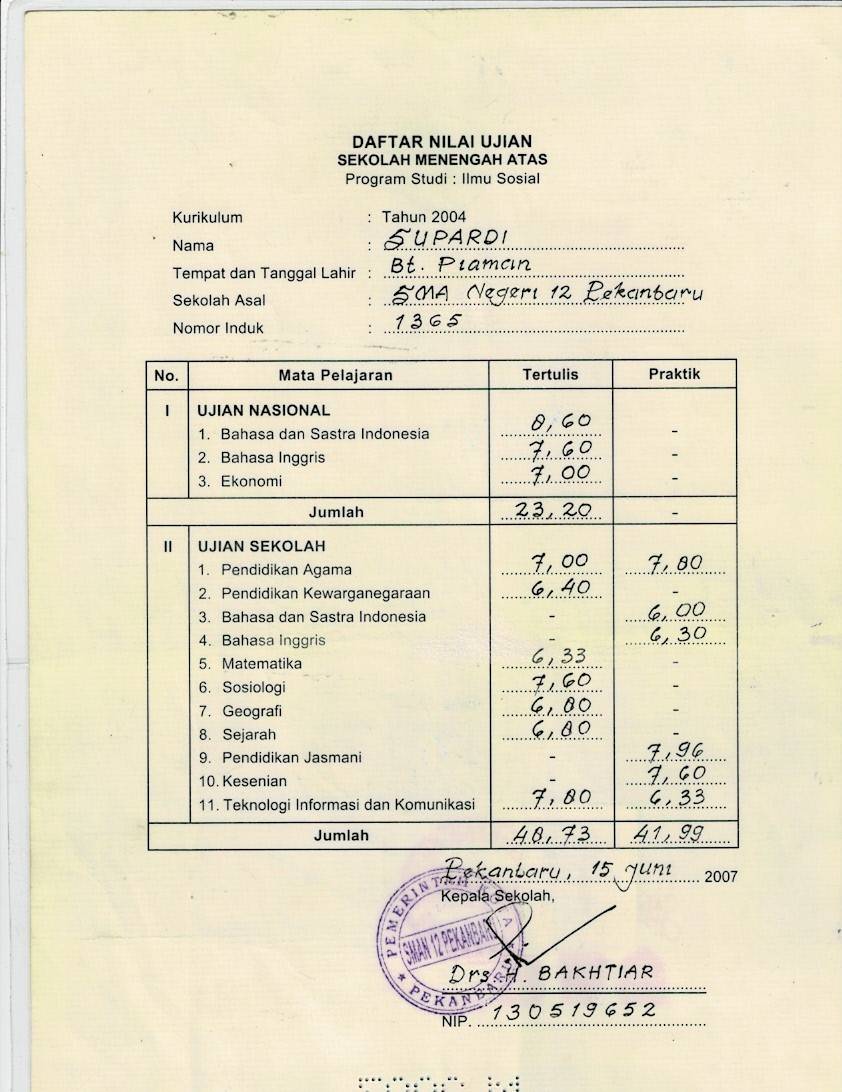 DAFTAR NILAI UJIAN
SEKOLAH MENENGAH ATAS
Program Studi : Ilmu Sosial
Kurikulum : Tahun 2004
Nama : SUPARDI
Tempat dan Tanggal Lahir : Bt. Piaman
Sekolah Asal : SMA Negeri 12 Pekanbaru
Nomor Induk : 1365
No. Mata Pelajaran Tertulis Praktik
I UJIAN NASIONAL
1. Bahasa dan Sastra Indonesia 8,60 -
2. Bahasa Inggris 7,60 -
3. Ekonomi 7,00 -
Jumlah 23,20 -
II UJIAN SEKOLAH
1. Pendidikan Agama 7,00 7,80
2. Pendidikan Kewarganegaraan 6,40 -
3. Bahasa dan Sastra Indonesia - 6,00
4. Bahasa Inggris - 6,30
5. Matematika 6,33 -
6. Sosiologi 7,60 -
7. Geografi 6,80 -
8. Sejarah 6,80 -
9. Pendidikan Jasmani - 7,96
10. Kesenian - 7,60
11. Teknologi Informasi dan Komunikasi 7,80 6,33
Jumlah 48,73 41,99
Pekanbaru, 15 Juni 2007
Kepala Sekolah,
PEMERINTAH KOTA
SMAN 12 PEKANBARU
PEKANBARU
Drs. H. BAKHTIAR
NIP. 130519652